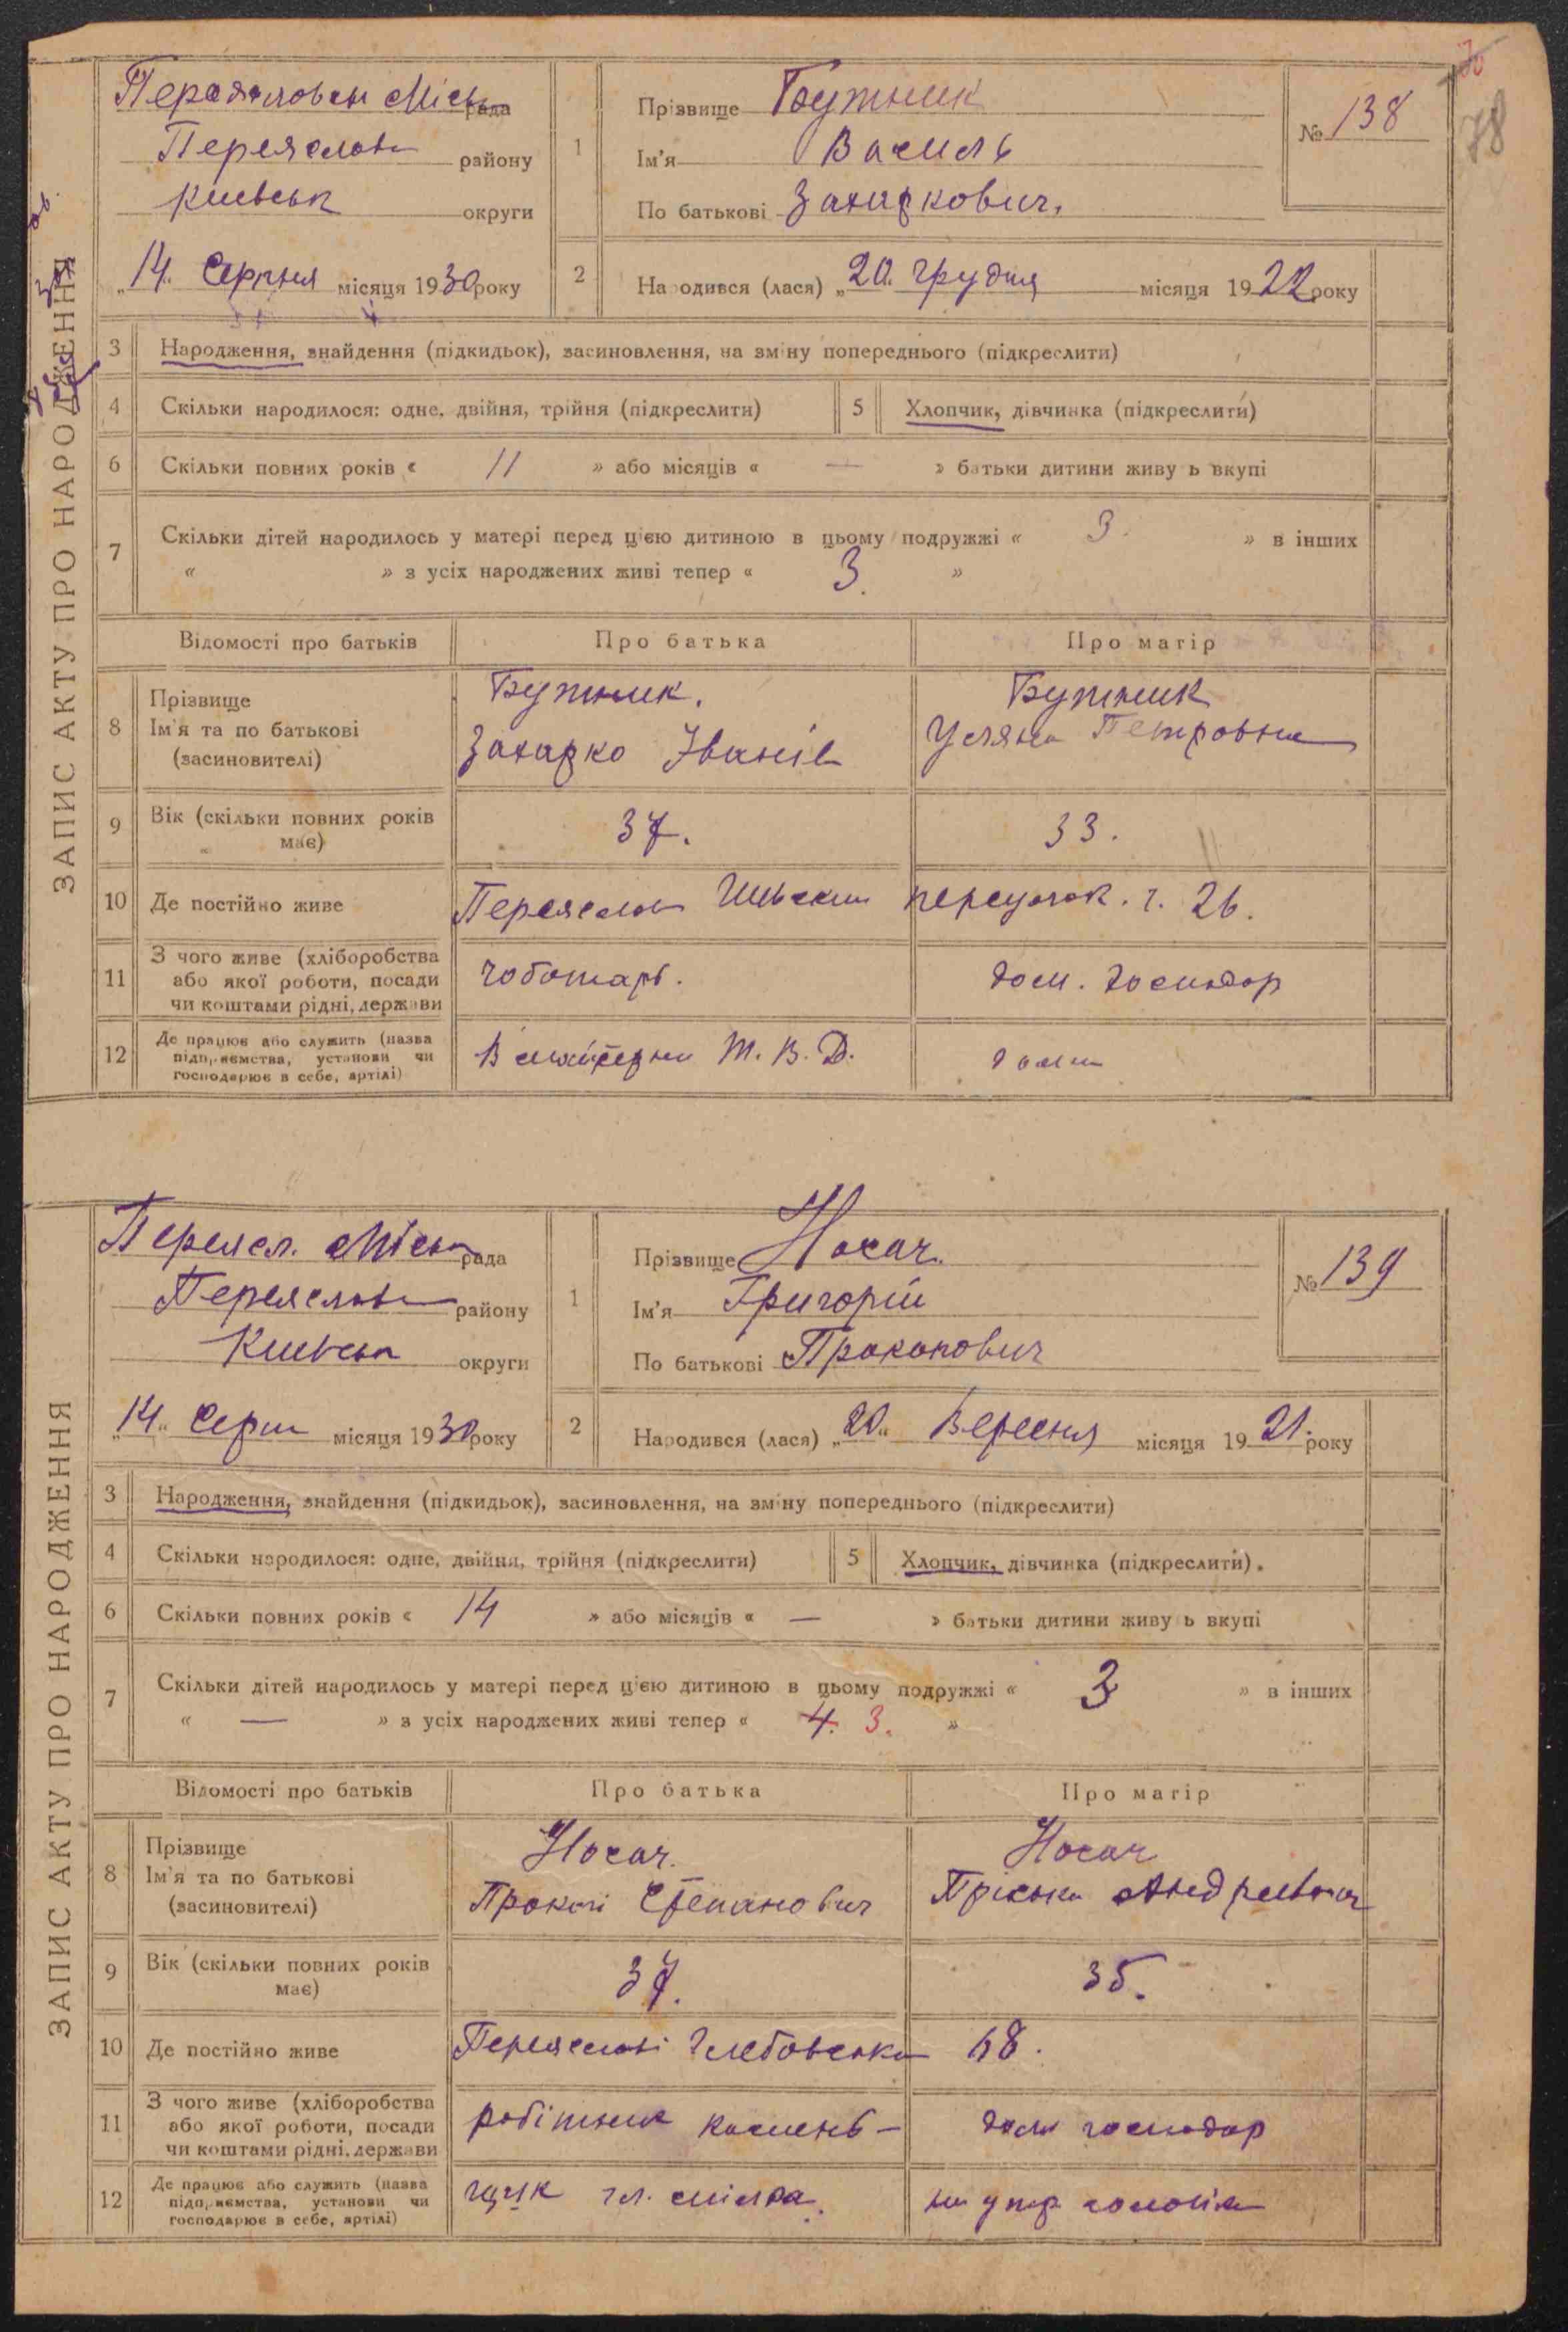 78
ЗАПИС АКТУ ПРО НАРОДЖЕННЯ
Переяславськ Міськ рада
Переяслав району
Київськ округи
„14" Серпня місяця 1930 року
1 Прізвище Бутник
Ім'я Василь
По батькові Захаркович.
№ 138
2 Народився (лася) „20" грудня місяця 1922 року
3 Народження, знайдення (підкидьок), засиновлення, на зміну попереднього (підкреслити)
4 Скільки народилося: одне, двійня, трійня (підкреслити) 5 Хлопчик, дівчинка (підкреслити)
6 Скільки повних років « 11 » або місяців « — » батьки дитини живуть вкупі
7 Скільки дітей народилось у матері перед цією дитиною в цьому подружжі « 3. » в інших
« » з усіх народжених живі тепер « 3. »
Відомості про батьків Про батька Про матір
8 Прізвище Бутник. Бутник
Ім'я та по батькові Захарко Іванів Уляна Петровна
(засиновителі)
9 Вік (скільки повних років має) 37. 33.
10 Де постійно живе Переяслав переулок. ч. 26.
11 З чого живе (хліборобства або якої роботи, посади чи коштами рідні, держави чоботарь. дом. господар
12 Де працює або служить (назва підприємства, установи чи господарює в себе, артілі) В майстерни Т. В. Д. дома
ЗАПИС АКТУ ПРО НАРОДЖЕННЯ
Переясл. Міськ рада
Переяслав району
Київськ округи
„14" Серп місяця 1930 року
1 Прізвище Носач.
Ім'я Григорій
По батькові Прокопович
№ 139
2 Народився (лася) „20" Вересня місяця 1921. року
3 Народження, знайдення (підкидьок), засиновлення, на зміну попереднього (підкреслити)
4 Скільки народилося: одне, двійня, трійня (підкреслити) 5 Хлопчик, дівчинка (підкреслити).
6 Скільки повних років « 14 » або місяців « — » батьки дитини живуть вкупі
7 Скільки дітей народилось у матері перед цією дитиною в цьому подружжі « 3 » в інших
« — » з усіх народжених живі тепер « 4. 3. »
Відомості про батьків Про батька Про матір
8 Прізвище Носач. Носач
Ім'я та по батькові Прокіп Степанович Пріська Андреевна
(засиновителі)
9 Вік (скільки повних років має) 37. 35.
10 Де постійно живе Переяславі 68.
11 З чого живе (хліборобства або якої роботи, посади чи коштами рідні, держави робітник камень- дом господар
12 Де працює або служить (назва підприємства, установи чи господарює в себе, артілі) щик чл. спілка.